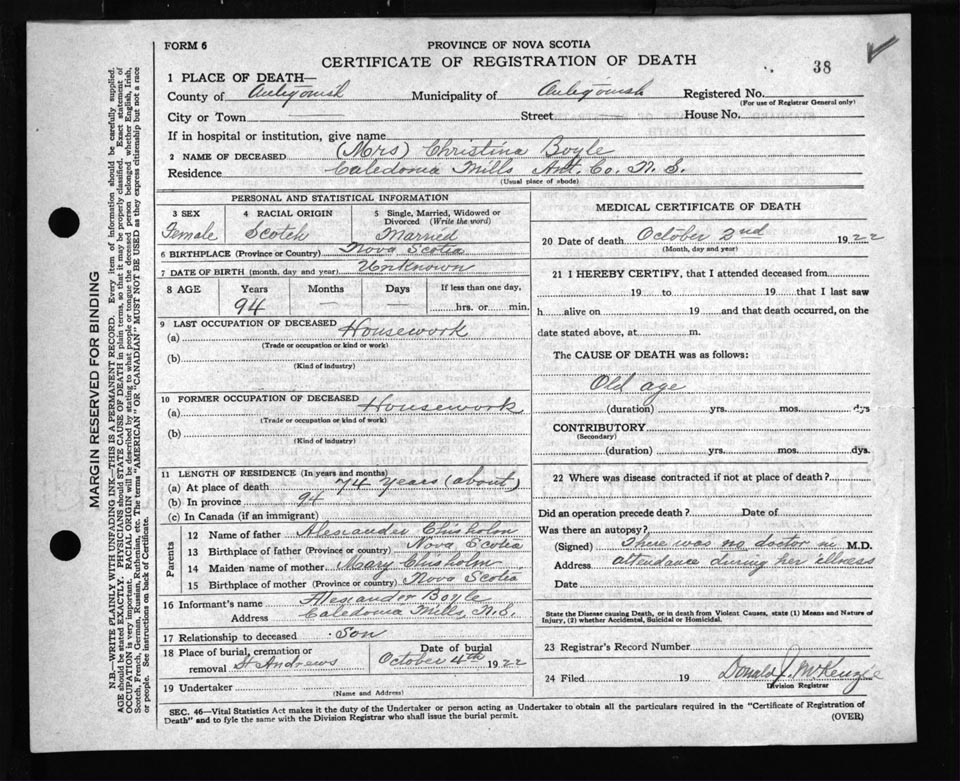 FORM 6
PROVINCE OF NOVA SCOTIA
CERTIFICATE OF REGISTRATION OF DEATH
38
1 PLACE OF DEATH—
County of Antigonish Municipality of Antigonish Registered No.
(For use of Registrar General only)
City or Town Street House No.
If in hospital or institution, give name
2 NAME OF DECEASED (Mrs) Christina Boyle
Residence Caledonia Mills Ant. Co. N. S.
(Usual place of abode)
PERSONAL AND STATISTICAL INFORMATION
3 SEX 4 RACIAL ORIGIN 5 Single, Married, Widowed or
Divorced (Write the word)
Female Scotch Married
6 BIRTHPLACE (Province or Country) Nova Scotia
7 DATE OF BIRTH (month, day and year) Unknown
8 AGE Years Months Days If less than one day,
94 hrs. or min.
9 LAST OCCUPATION OF DECEASED
(a) Housework
(Trade or occupation or kind or work)
(b)
(Kind of industry)
10 FORMER OCCUPATION OF DECEASED
(a) Housework
(Trade or occupation or kind of work)
(b)
(Kind of industry)
11 LENGTH OF RESIDENCE (In years and months)
(a) At place of death 74 years (about)
(b) In province 94
(c) In Canada (if an immigrant)
Parents
12 Name of father Alexander Chisholm
13 Birthplace of father (Province or country) Nova Scotia
14 Maiden name of mother Mary Chisholm
15 Birthplace of mother (Province or country) Nova Scotia
16 Informant's name Alexander Boyle
Address Caledonia Mills, N.S.
17 Relationship to deceased Son
18 Place of burial, cremation or removal St Andrews
Date of burial
October 4th 1922
19 Undertaker
(Name and Address)
MEDICAL CERTIFICATE OF DEATH
20 Date of death October 2nd 1922
(Month, day and year)
21 I HEREBY CERTIFY, that I attended deceased from
19 to 19 that I last saw
h alive on 19 and that death occurred, on the
date stated above, at m.
The CAUSE OF DEATH was as follows:
Old age
(duration) yrs. mos. dys
CONTRIBUTORY
(Secondary)
(duration) yrs. mos. dys.
22 Where was disease contracted if not at place of death?
Did an operation precede death? Date of
Was there an autopsy?
(Signed) There was no doctor in M.D.
Address attendance during her illness
Date
State the Disease causing Death, or in death from Violent Causes, state (1) Means and Nature of
Injury, (2) whether Accidental, Suicidal or Homicidal.
23 Registrar's Record Number
24 Filed 19 Donald J. McKenzie
Division Registrar
SEC. 46—Vital Statistics Act makes it the duty of the Undertaker or person acting as Undertaker to obtain all the particulars required in the "Certificate of Registration of
Death" and to fyle the same with the Division Registrar who shall issue the burial permit.
(OVER)
MARGIN RESERVED FOR BINDING
N.B.—WRITE PLAINLY WITH UNFADING INK—THIS IS A PERMANENT RECORD. Every item of information should be carefully supplied.
AGE should be stated EXACTLY. PHYSICIANS should STATE CAUSE OF DEATH in plain terms, so that it may be properly classified. Exact statement of
OCCUPATION is very important. RACIAL ORIGIN will be described by stating to what people or tongue the deceased person belonged whether English, Irish,
Scotch, French, German, Russian, Ruthenian, etc. The terms "AMERICAN" OR "CANADIAN" MUST NOT BE USED as they express citizenship but not a race
or people. See instructions on back of Certificate.